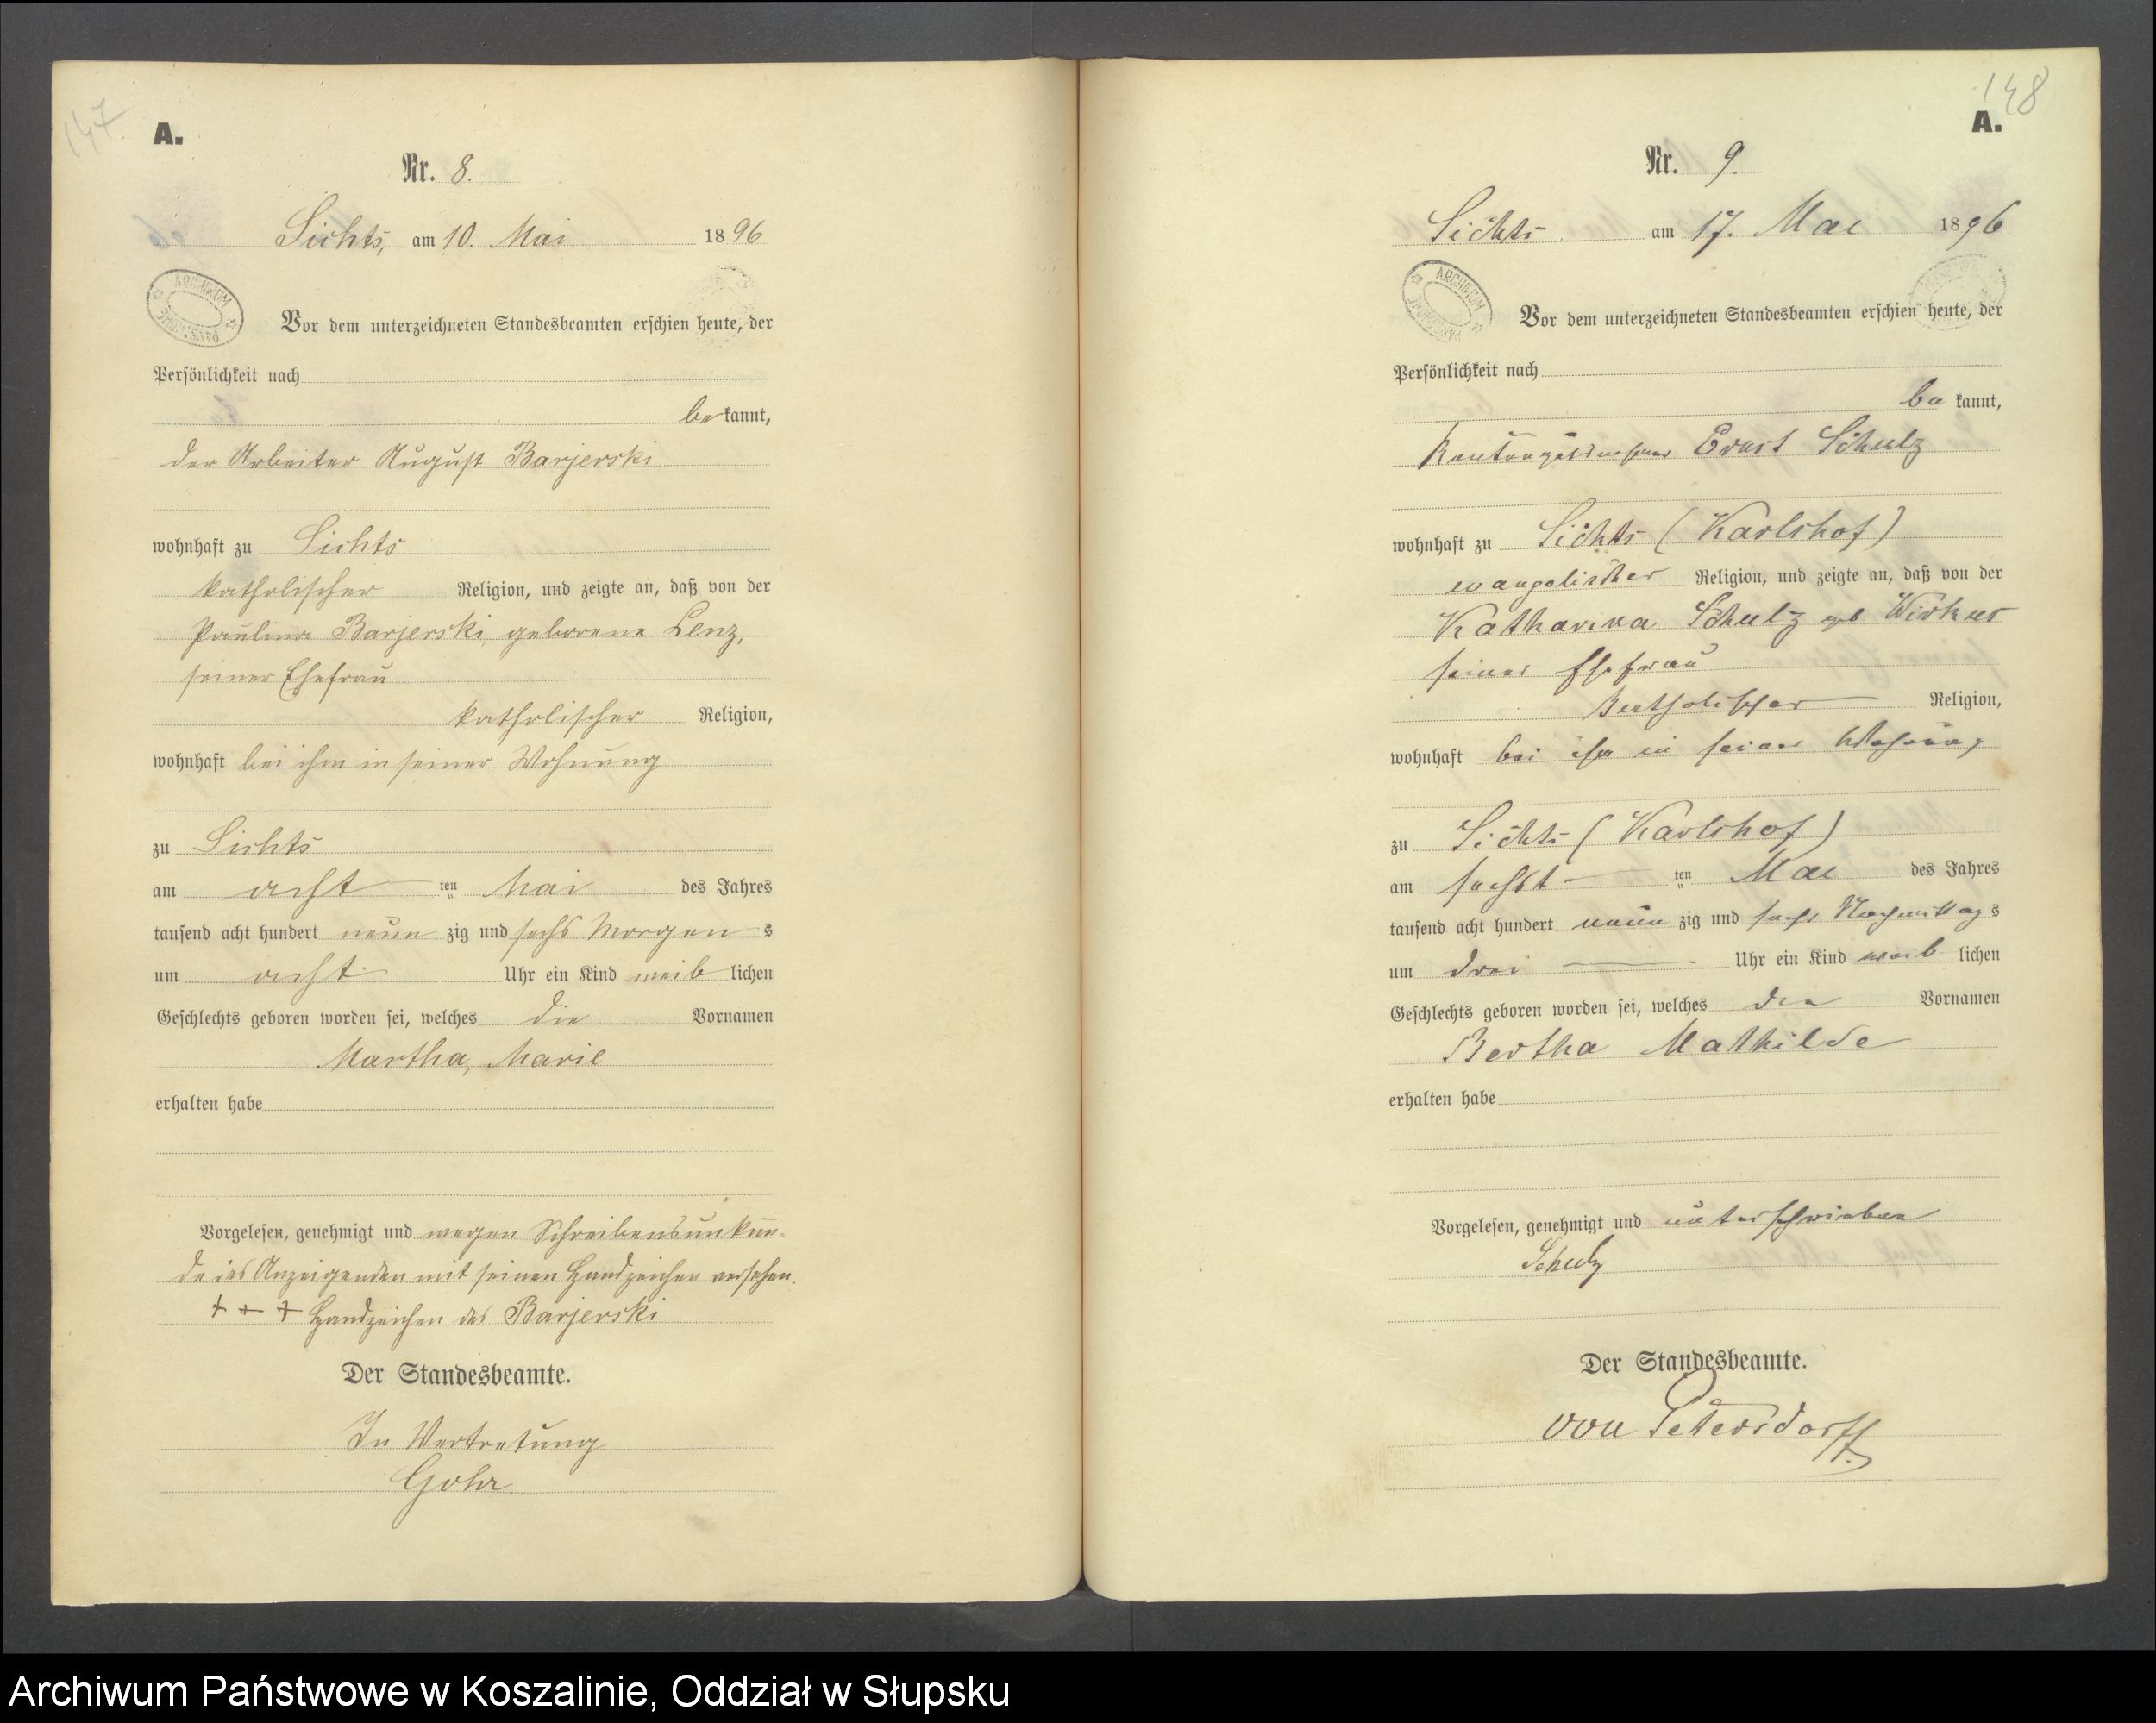 147
A.
Nr. 8.
Sichts, am 10. Mai 1896
ARCHIWUM PAŃSTWOWE
Vor dem unterzeichneten Standesbeamten erschien heute, der
Persönlichkeit nach
bekannt,
der Arbeiter August Barjerski
wohnhaft zu Sichts
katholischer Religion, und zeigte an, daß von der
Paulina Barjerski, geborene Lenz,
seiner Ehefrau
katholischer Religion,
wohnhaft bei ihm in seiner Wohnung
zu Sichts
am acht ten Mai des Jahres
tausend acht hundert neun zig und sechs Morgens
um acht Uhr ein Kind weiblichen
Geschlechts geboren worden sei, welches die Vornamen
Martha, Marie
erhalten habe
Vorgelesen, genehmigt und wegen Schreibensunkun-
de des Anzeigenden mit seinen Handzeichen versehen.
+ + + Handzeichen des Barjerski
Der Standesbeamte.
In Vertretung
Gohr
148
A.
Nr. 9.
Sichts am 17. Mai 1896
ARCHIWUM PAŃSTWOWE
Vor dem unterzeichneten Standesbeamten erschien heute, der
Persönlichkeit nach
bekannt,
Ernst Schulz
wohnhaft zu Sichts (Karlshof)
evangelischer Religion, und zeigte an, daß von der
Katharina Schulz geb. Wirkus
seiner Ehefrau
katholischer Religion,
wohnhaft bei ihm in seiner Wohnung
zu Sichts (Karlshof)
am sechst ten Mai des Jahres
tausend acht hundert neun zig und sechs Nachmittags
um drei Uhr ein Kind weiblichen
Geschlechts geboren worden sei, welches die Vornamen
Bertha Mathilde
erhalten habe
Vorgelesen, genehmigt und unterschrieben
Schulz
Der Standesbeamte.
von Petersdorff.
Archiwum Państwowe w Koszalinie, Oddział w Słupsku